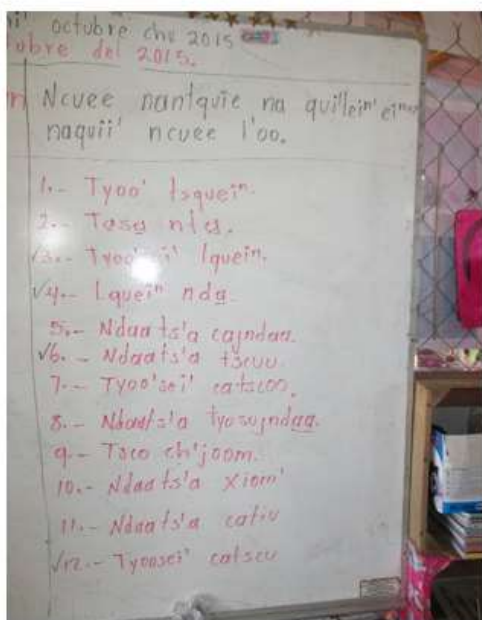 octubre che 2015
tubre del 2015.
Ncuee nantquie na qui'lein'
naquii' ncuee l'oo.
1.- Tyoo' tsquein.
2.- Tasa nta.
√3.- lquein.
√4.- Lquein nda
5.- Ndaa ts'a cajndaa.
√6.- Ndaa ts'a tscuu
7.- Tyoo'sei' catscoo.
8.- Ndaa ts'a tyosojndaa.
9.- Tsco ch'joom.
10.- Ndaa ts'a xiom'
11.- Ndaa ts'a catiu
√12.- Tyoosei' catscu